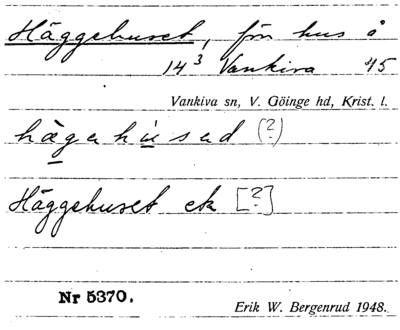 Häggehuset, förr hus å
14³ Vankiva 45
Vankiva sn, V. Göinge hd, Krist. l.
hägahúsad (?)
Häggehuset ek [?]
Nr 5370.
Erik W. Bergenrud 1948.